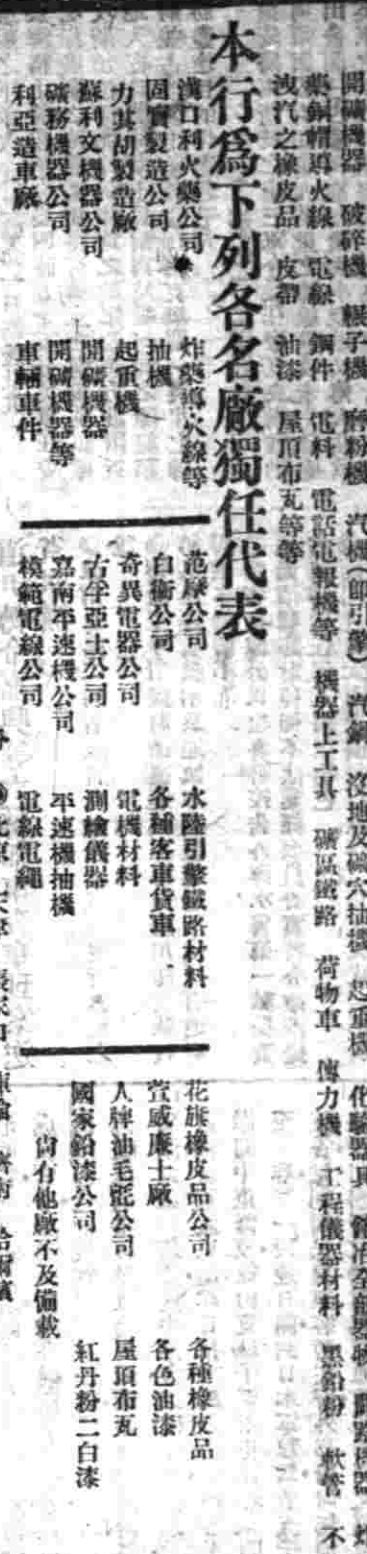 開礦機器 破碎機 輥子機 磨粉機 汽機(即引擎) 汽鍋 沒地及礦穴抽機 起重機 化驗器具
藥銅帽導火線 電線 鋼件 電料 電話電報機等 機器上工具 礦區鐵路 荷物車 傳力機 工程儀器材料 黑鉛粉 軟管 不
洩汽之橡皮品 皮帶 油漆 屋頂布瓦等等
本行爲下列各名廠獨任代表
漢口利火藥公司 炸藥導火線等
固實製造公司 抽機
力其胡製造廠 起重機
蘇利文機器公司 開礦機器
礦務機器公司 開礦機器等
利亞造車廠 車輛車件
范摩公司 水陸引擎鐵路材料
白衞公司 各種客車貨車
奇異電器公司 電機材料
古孚亞土公司 測繪儀器
嘉南平速機公司 平速機抽機
模範電線公司 電線電繩
花旗橡皮品公司 各種橡皮品
萱威廉士廠 各色油漆
人牌油毛氈公司 屋頂布瓦
國家鉛漆公司 紅丹粉二白漆
尚有他廠不及備載